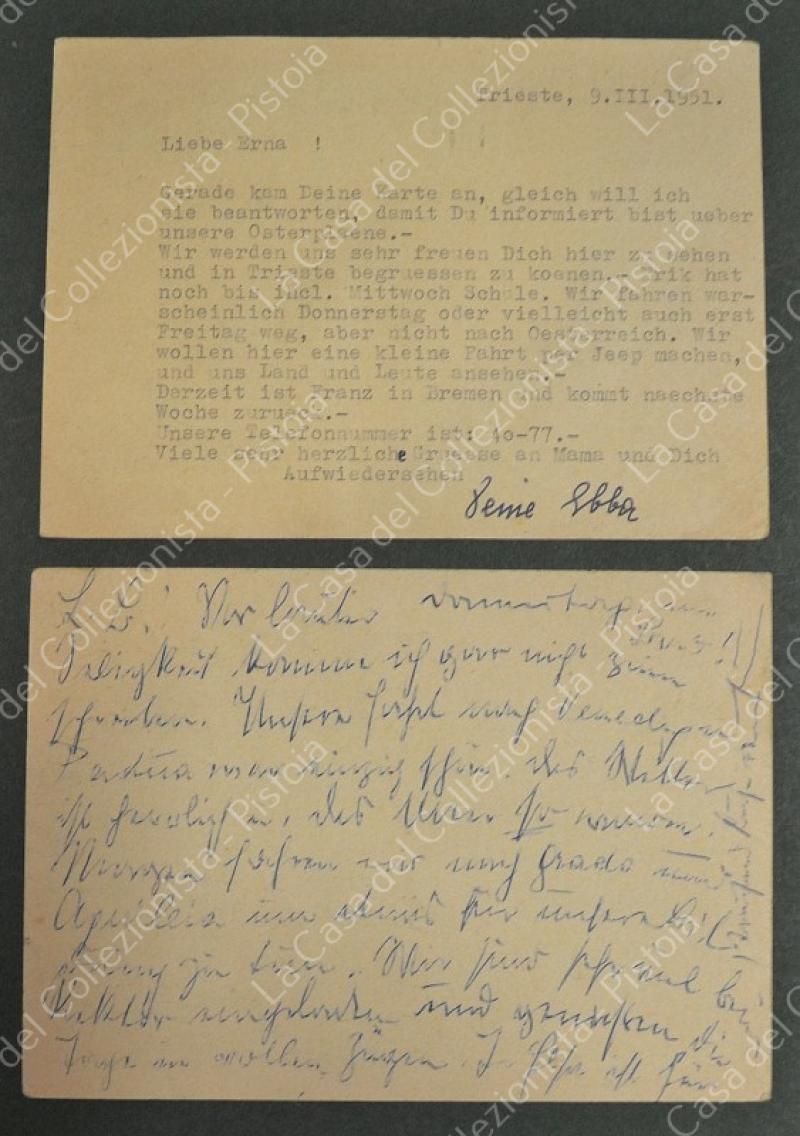 Trieste, 9.III.1951.
Liebe Erna !
Gerade kam Deine Karte an, gleich will ich
sie beantworten, damit Du informiert bist ueber
unsere Osterplaene.-
Wir werden uns sehr freuen Dich hier zu sehen
und in Trieste begruessen zu koenen.- Erik hat
noch bis incl. Mittwoch Schule. Wir fahren war-
scheinlich Donnerstag oder vielleicht auch erst
Freitag weg, aber nicht nach Oesterreich. Wir
wollen hier eine kleine Fahrt per Jeep machen,
und uns Land und Leute ansehen.-
Derzeit ist Franz in Bremen und kommt naechste
Woche zurueck.-
Unsere Telefonnummer ist: 40-77.-
Viele sehr herzliche Gruesse an Mama und Dich
Aufwiedersehen
Deine Ebba
L. L.! Vor lauter
Seligkeit komme ich gar nicht zum
schreiben. Unsere Fahrt nach Venedig
Padua war einzig schön, das Wetter
ist herrlich, das Meer so warm.
Morgen fahren wir nach Grado und
Aquileia um etwas für unsere Bil
dung zu tun. Wir sind sehr viel bei
eingeladen und geniessen die
Tage in vollen Zügen.
La Casa del Collezionista - Pistoia